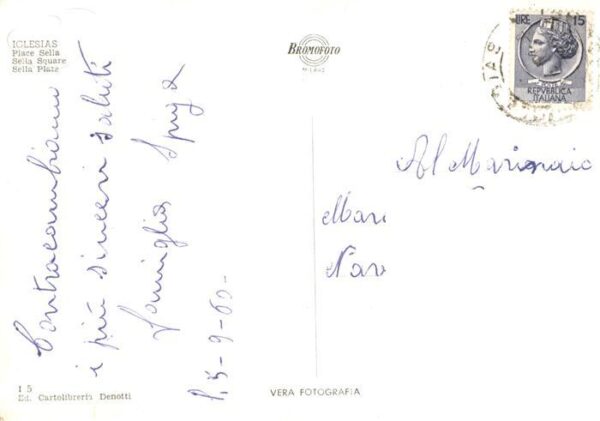 IGLESIAS
Place Sella
Sella Square
Sella Platz
BROMOFOTO
MILANO
LIRE 15
REPVBBLICA
ITALIANA
Contracambiamo
i più sinceri saluti
Famiglia Spiga
5-9-60-
Al Marinaio
Mari
Nav
15
Ed. Cartolibreria Denotti
VERA FOTOGRAFIA